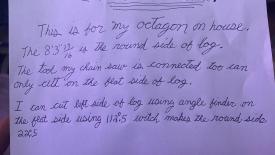 This is for my octagon on house.
The 8'3 13/16 is the round side of log.
The tool my chain saw is connected too can
only cut on the flat side of log.
I can cut left side of log using angle finder on
the flat side using 112.5 witch makes the round side
22.5